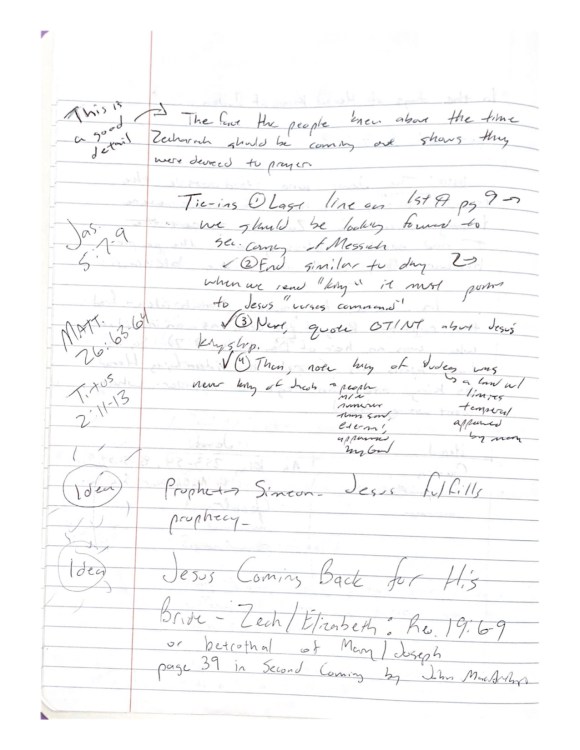 This is
a good
detail
The fact the people knew about the time
Zechariah should be coming out shows they
were devoted to prayer.
Tie-ins ① Last line on 1st ¶ pg 9 →
we should be looking forward to
sec. coming of Messiah
✓ ② End similar to day
when we read "king" it must point
to Jesus "verses command"
✓ ③ Next, quote OT/NT about Jesus'
kingship.
✓ ④ Then, note king of Judea was
never king of Jews → people
a land w/
limits
temporal
appointed
by man
eternal,
appointed
by God
Jas.
5:7-9
MATT.
26:63-64
Titus
2:11-13
Idea
Prophet → Simeon - Jesus fulfills
prophecy -
Idea
Jesus Coming Back for His
Bride - Zech/Elizabeth: Rev. 19:6-9
or betrothal of Mary/Joseph
page 39 in Second Coming by John MacArthur